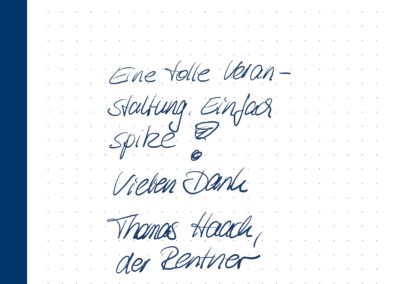 Eine tolle Veran-
staltung. Einfach
spitze!
Vielen Dank
Thomas Haack,
der Rentner